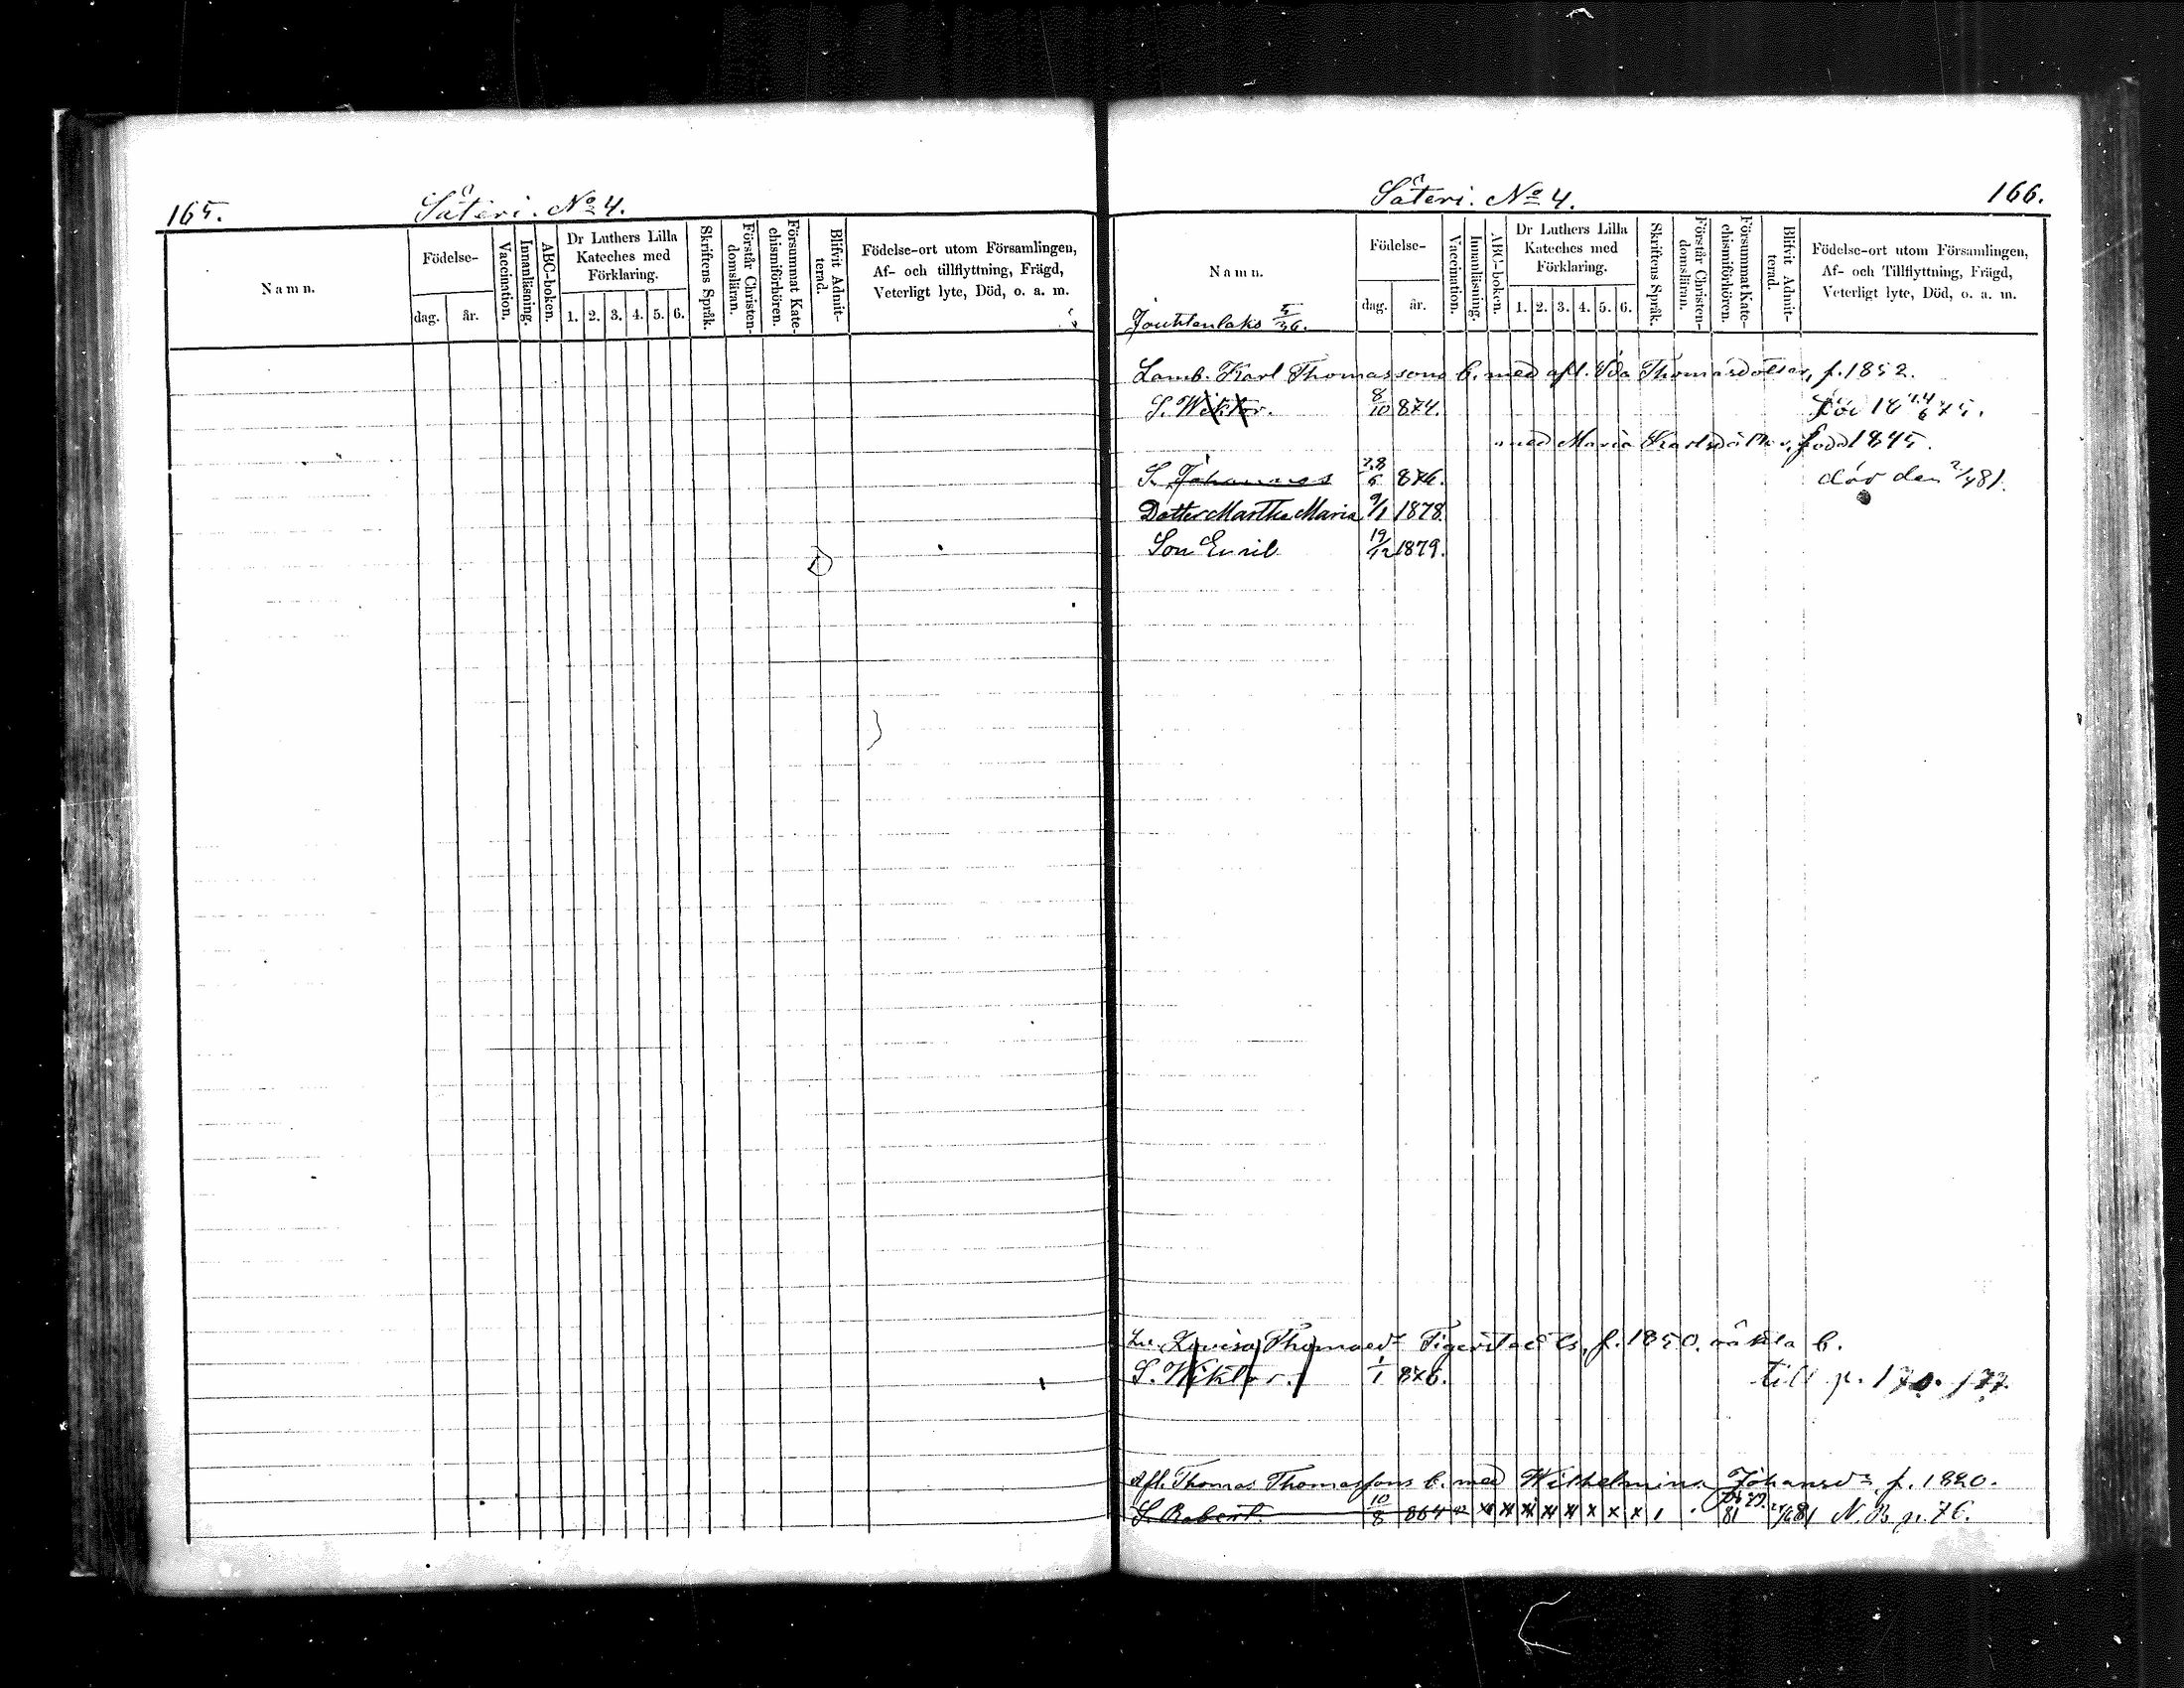 165.
Såteri. No 4.
Namn.
Födelse-
dag.
år.
Vaccination.
Innanläsning.
ABC-boken.
Dr Luthers Lilla
Kateches med
Förklaring.
1. 2. 3. 4. 5. 6.
Skriftens Språk.
Förstår Christen-
domsläran.
Försummat Kate-
chismiförhören.
Blifvit Admit-
terad.
Födelse-ort utom Församlingen,
Af- och tillflyttning, Frägd,
Veterligt lyte, Död, o. a. m.
Såteri. No 4.
166.
Namn.
Födelse-
dag.
år.
Vaccination.
Innanläsning.
ABC-boken.
Dr Luthers Lilla
Kateches med
Förklaring.
1. 2. 3. 4. 5. 6.
Skriftens Språk.
Förstår Christen-
domsläran.
Försummat Kate-
chismiförhören.
Blifvit Admit-
terad.
Födelse-ort utom Församlingen,
Af- och Tillflyttning, Frägd,
Veterligt lyte, Död, o. a. m.
Jouhtenlaks
Lamb. Karl Thomassons b. med afl. Ida Thomasdotter, f. 1852.
S. Wiktor. 8/10 874.
med Maria Karlsdotter, född 1845.
S. Johannes 28/5 876. döv den 2/4 81.
Dotter Martha Maria 9/1 1878.
Son Emil 19/12 1879.
Lovisa Thomasdr f. 1850. b.
S. Wiktor. 1/1 876. till p. 177.
Afl. Thomas Thomassons b. med Wilhelmina Johansdr, f. 1820.
S. Robert. 10/8 864 x x x x x x x x 81 N.B. p. 76.